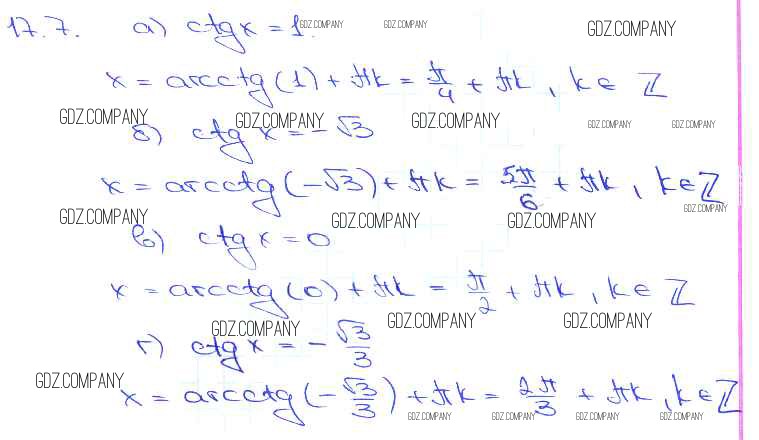 17.7. а) ctg x = 1. GDZ.COMPANY GDZ.COMPANY GDZ.COMPANY
x = arcctg(1) + πk = π/4 + πk, k ∈ ℤ
GDZ.COMPANY GDZ.COMPANY GDZ.COMPANY GDZ.COMPANY GDZ.COMPANY
б) ctg x = -√3
x = arcctg(-√3) + πk = 5π/6 + πk, k ∈ ℤ
GDZ.COMPANY GDZ.COMPANY GDZ.COMPANY GDZ.COMPANY
в) ctg x = 0
x = arcctg(0) + πk = π/2 + πk, k ∈ ℤ
GDZ.COMPANY GDZ.COMPANY GDZ.COMPANY
г) ctg x = -√3/3
GDZ.COMPANY
x = arcctg(-√3/3) + πk = 2π/3 + πk, k ∈ ℤ
GDZ.COMPANY GDZ.COMPANY GDZ.COMPANY GDZ.COMPANY